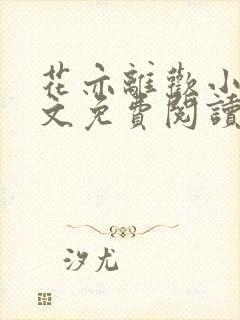 花亦離歡小
文免費閱讀
汐尤